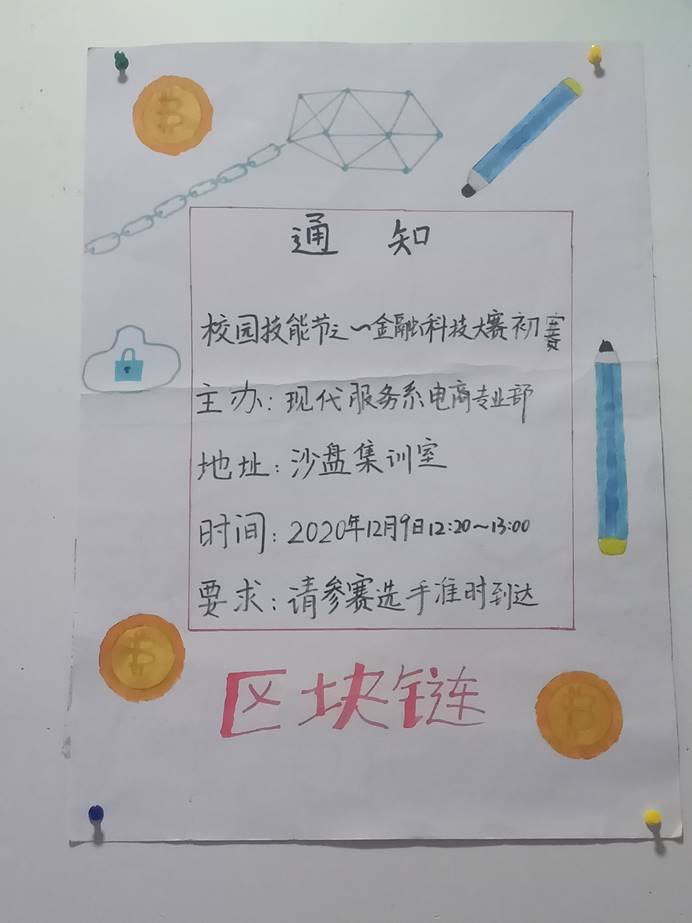 通 知
校园技能节之一金融科技大赛初赛
主办：现代服务系电商专业部
地址：沙盘集训室
时间：2020年12月9日12:20～13:00
要求：请参赛选手准时到达
区块链